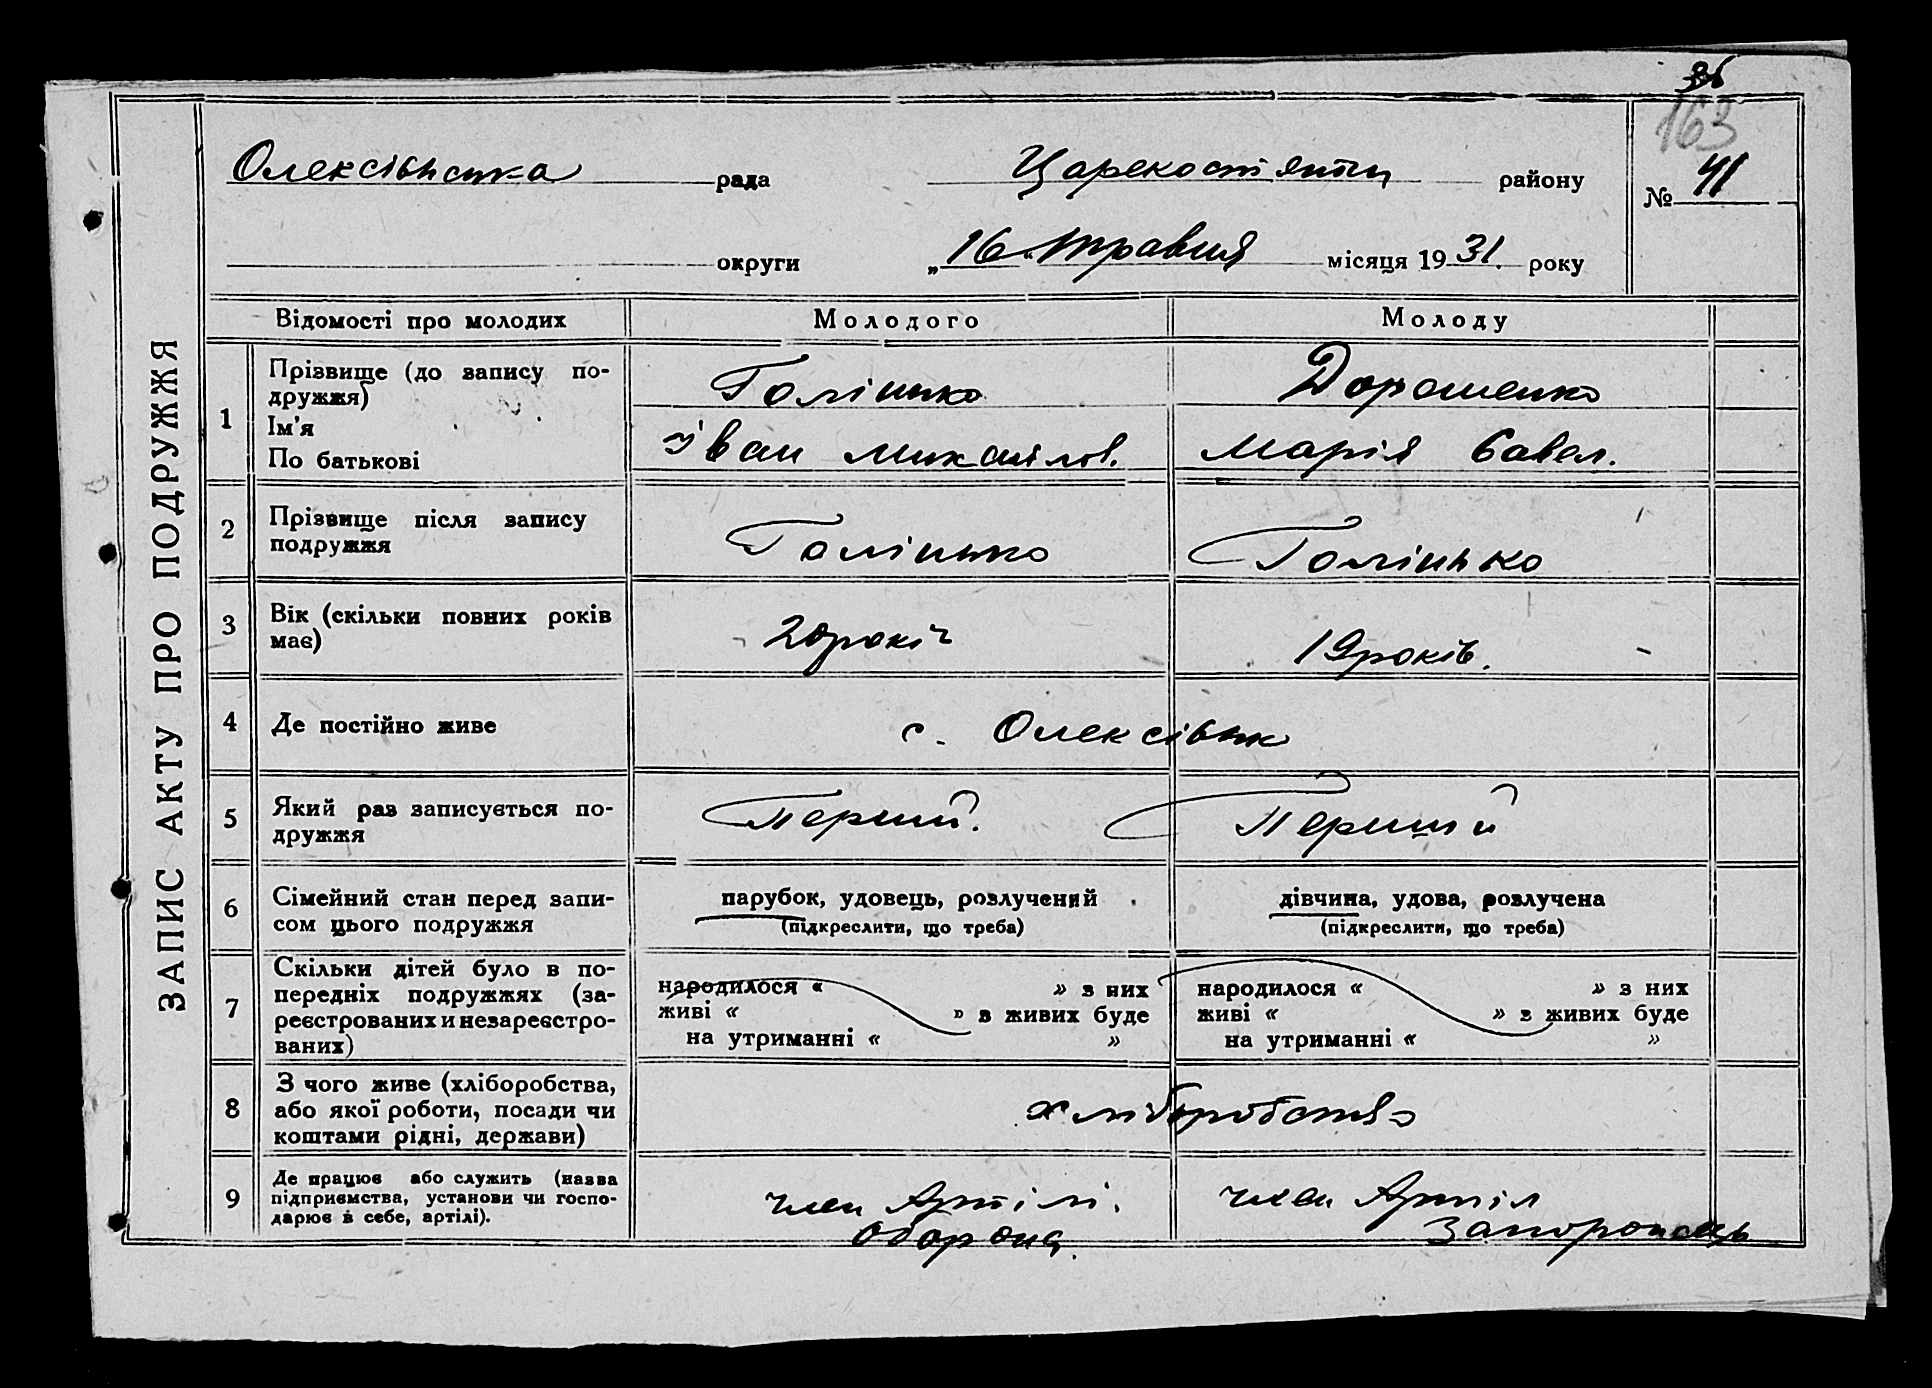 163
Олексівська рада
Царекостянтин району
№ 41
округи
„16“ травня місяця 1931. року
ЗАПИС АКТУ ПРО ПОДРУЖЖЯ
Відомості про молодих Молодого Молоду
1 Прізвище (до запису по-
дружжя)
Ім'я
По батькові
Голінько Дорошенко
Іван Михайлов. Марія Савел.
2 Прізвище після запису
подружжя
Голінько Голінько
3 Вік (скільки повних років
має)
20 років 19 років.
4 Де постійно живе
с. Олексівки
5 Який раз записується по-
дружжя
Перший. Перший
6 Сімейний стан перед запи-
сом цього подружжя
парубок, удовець, розлучений дівчина, удова, розлучена
(підкреслити, що треба) (підкреслити, що треба)
7 Скільки дітей було в по-
передніх подружжях (за-
реєстрованих и незареєстро-
ваних)
народилося « » з них народилося « » з них
живі « » з живих буде живі « » з живих буде
на утриманні « » на утриманні « »
8 З чого живе (хліборобства,
або якої роботи, посади чи
коштами рідні, держави)
хліборобства
9 Де працює або служить (назва
підприємства, установи чи госпо-
дарює в себе, артілі).
член Артілі. член Артіл
Оборона. Запорожець